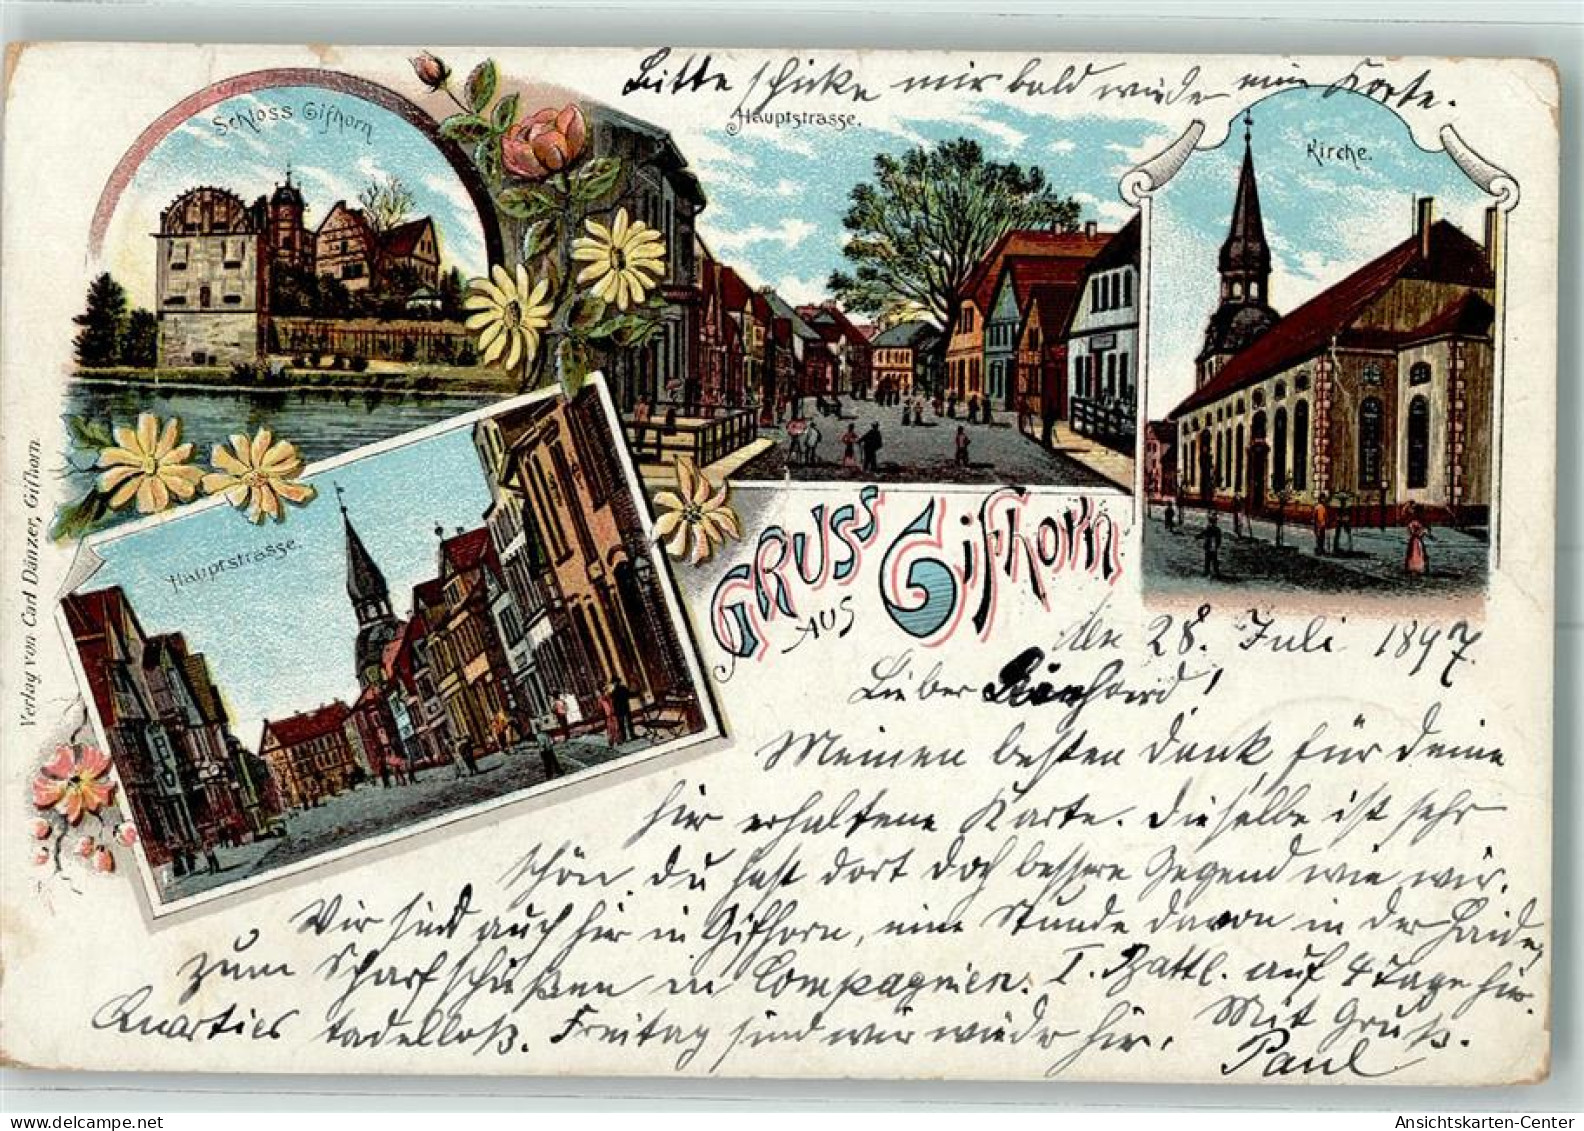 Bitte schicke mir bald wieder eine Karte.
Schloss Gifhorn
Hauptstrasse.
Kirche.
Hauptstrasse.
Verlag von Carl Dänzer, Gifhorn.
GRUSS AUS Gifhorn
den 28. Juli 1897.
Lieber Reinhard!
Meinen besten Dank für Deine
hier erhaltene Karte. Dieselbe ist sehr
schön. Du hast dort doch bessere Gegend wie wir.
Wir sind auch hier in Gifhorn, eine Stunde davon in der Haide,
zum Scharfschießen in Compagnien. I. Battl. auf 4 Tage hier.
Quartier tadelloß. Freitag sind wir wieder hier. Mit Gruß.
Paul
delcampe.net
Ansichtskarten-Center